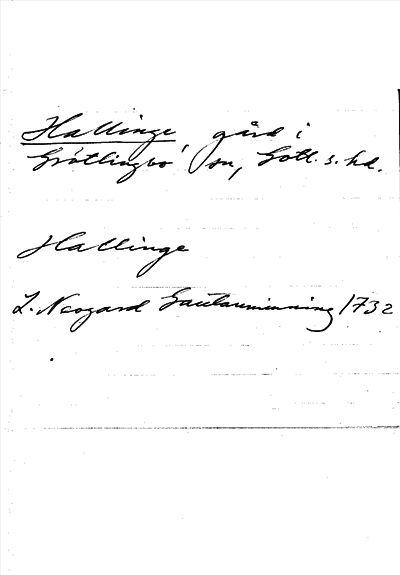 Hallinge gård i
Grötlingbo sn, Gotl. s. hd.
Hallinge
L. Neogard Gautauminning 1732